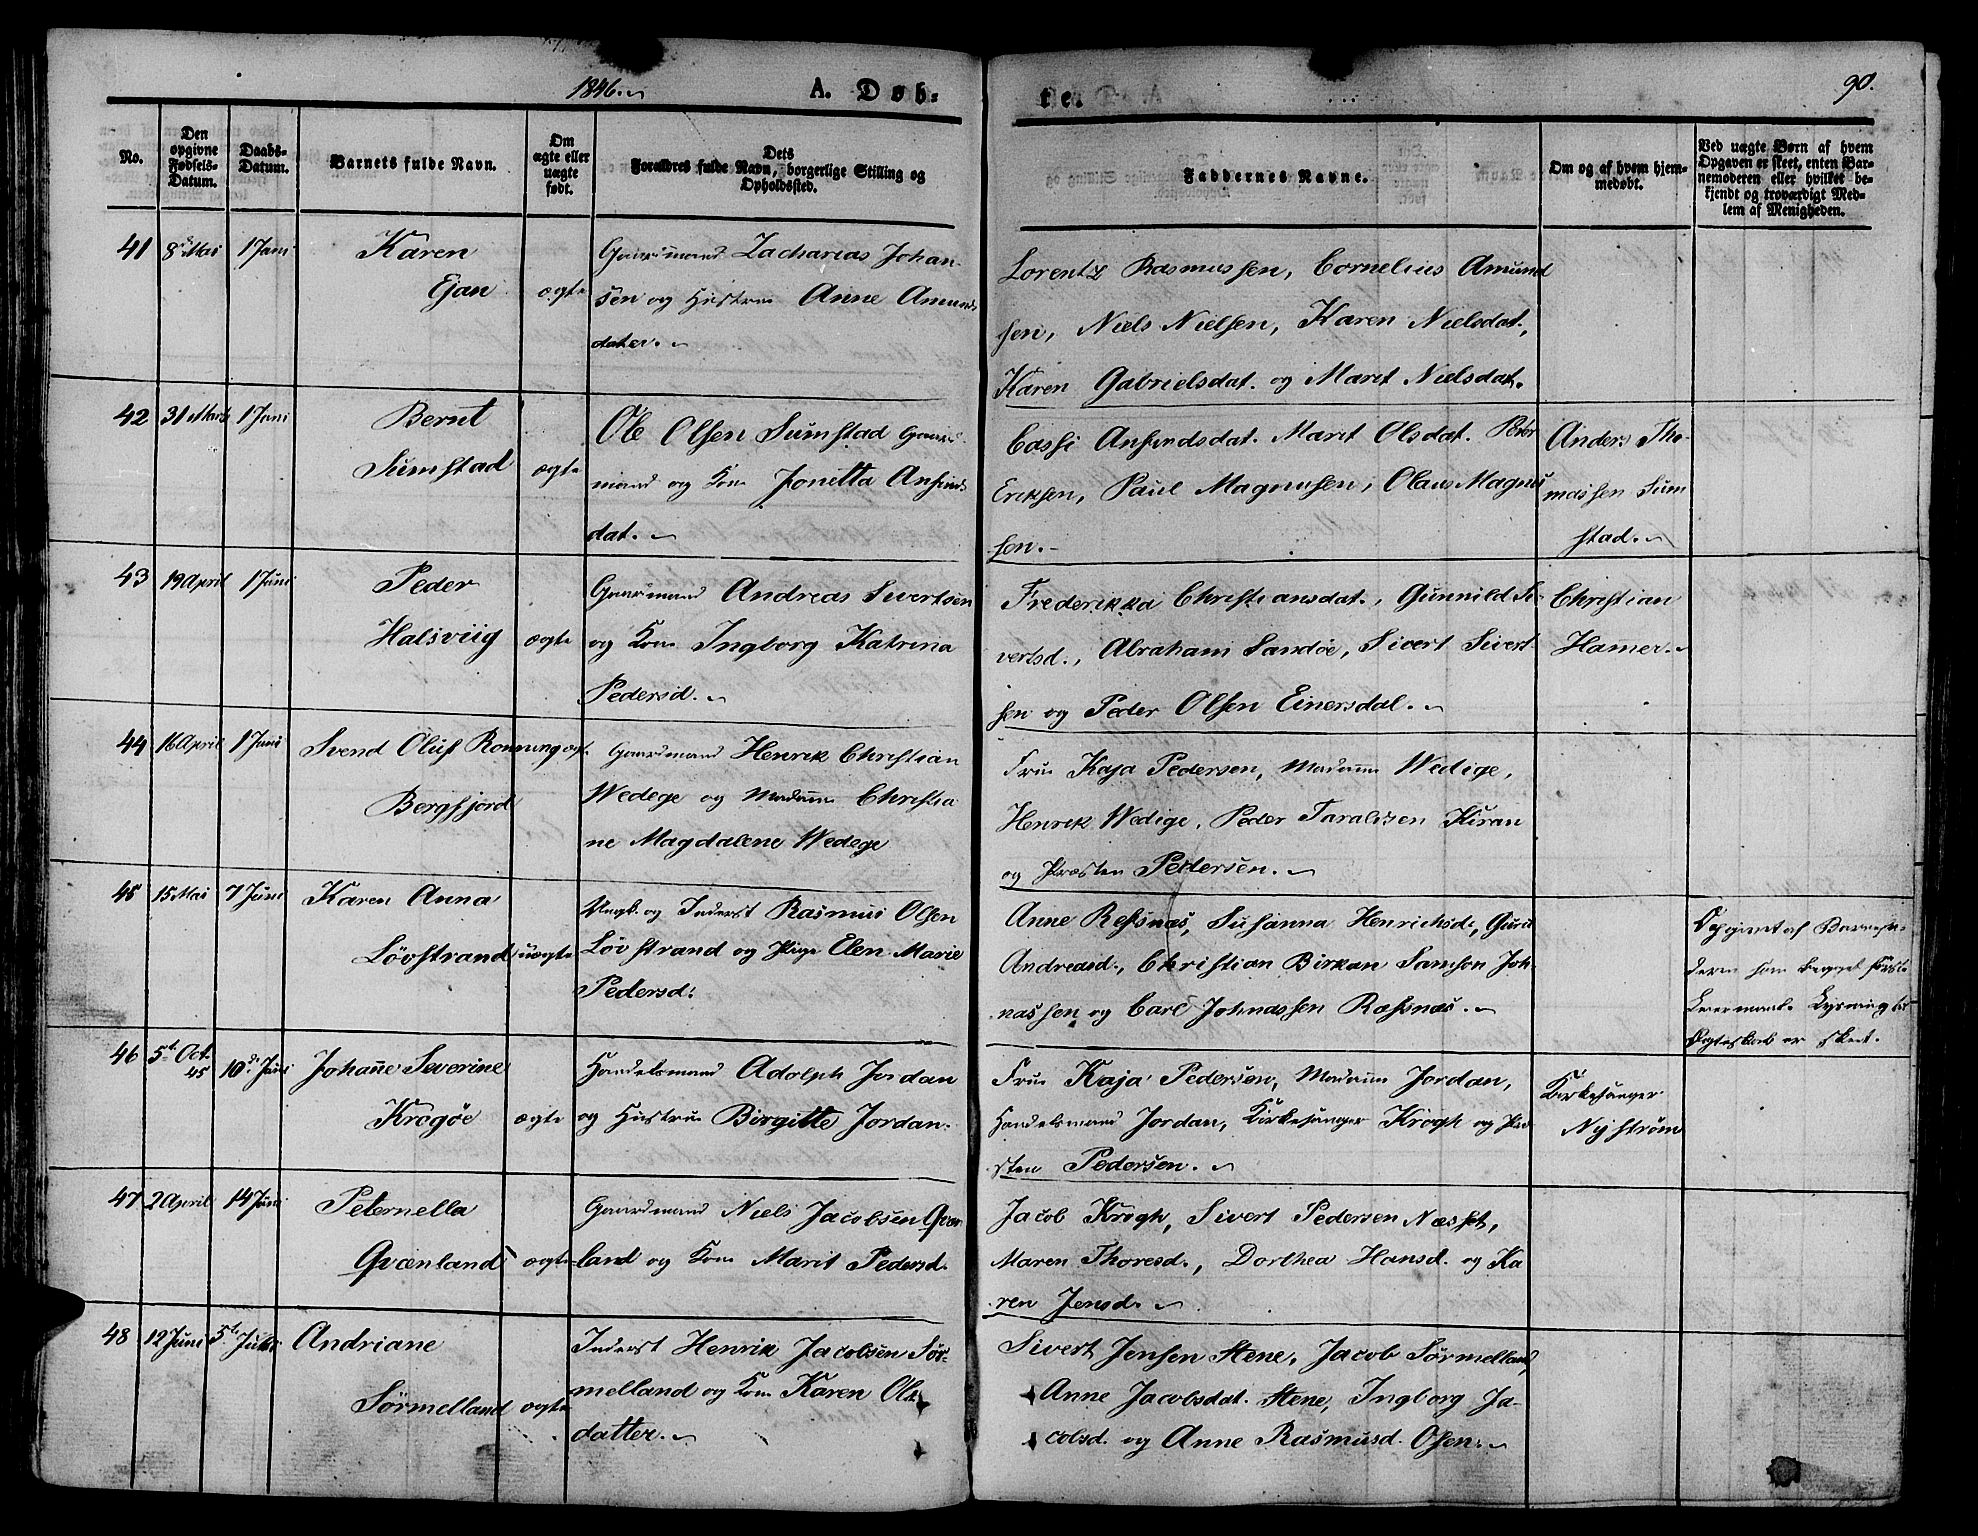 1846.
A. Døb-
ten
90.
No.
Den
opgivne
Fødsels-
Datum.
Daabs-
Datum.
Barnets fulde Navn.
Om
ægte eller
uægte
født.
Dets
Forældres fulde Navn, borgerlige Stilling og
Opholdssted.
Faddernes Navne.
Om og af hvem hjem-
medøbt.
Ved uægte Børn af hvem
Opgaven er skeet, enten Bar-
nemoderen eller hvilket be-
kjendt og troværdigt Med-
lem af Menigheden.
41 8de Mai 1 Juni
Karen
Ejan
ægte
Gaardmand Zacharias Johan-
sen og Hustrue Anne Amunds
datter.
Lorentz Rasmussen, Cornelius Amund
sen, Niels Nielsen, Karen Nielsdat.,
Karen Gabrielsdat. og Marit Nielsdat.
42 31 Marts 1 Juni
Bernt
Sumstad
ægte
Ole Olsen Sumstad Gaard-
mand og Kone Jonetta Ansfinds
dat.
Cassi Ansfindsdat. Marit Olsdat. Peter
Eriksen, Paul Magnusen, Olaus Magnu
sen.
Anders Tho-
massen Sum
stad.
43 19 April 1 Juni
Peder
Halsviig
ægte
Gaardmand Andreas Sivertsen
og Kone Ingborg Katrina
Pedersd.
Frederikka Christiansdat., Gunnild Si-
vertsd., Abraham Sandøe, Sivert Sivert-
sen og Peder Olsen Einersdal.
Christian
Hamer.
44 16 April 1 Juni
Svend Oluf Ronnung ægt.
Bergfjord
Gaardmand Henrik Christian
Wedege og Madame Christia
ne Magdalene Wedege
Frue Kaja Pedersen, Madame Wedige,
Henrik Wedige, Peder Taraldsen Kiran
og Præsten Pedersen.
45 15 Mai 7 Juni
Karen Anna
Løvstrand
uægte
Ungk. og Inderst Rasmus Olsen
Løvstrand og Pige Elen Marie
Pedersd.
Anne Refsnæs, Susanna Henrichsd., Guru
Andreasd., Christian Birkan Samson Joh-
nassen og Carl Johnassen Refsnæs.
Opgivet af Barnefa-
deren som begges første
Leiermaal. Lysning til
Ægteskab er skeet.
46 5te Oct. 10de Juni
45
Johanne Severine
Krogøe
ægte
Handelsmand Adolph Jordan
og Hustrue Birgitte Jordan.
Frue Kaja Pedersen, Madame Jordan,
Handelsmand Jordan, Kirkesanger Krogh og Præ
sten Pedersen.
Kirkesanger
Nyström
47 2 April 14 Juni
Peternella
Qvænland
ægte
Gaardmand Niels Jacobsen Qvæn
land og Kone Marit Pedersd.
Jacob Krogh, Sivert Pedersen Næsset,
Maren Thoresd., Dorthea Hansd. og Ka
ren Jensd.
48 12 Juni 5te Juli
Andriane
Sörmelland
ægte
Inderst Henrik Jacobsen Sör-
melland og Kone Karen Ols
datter.
Sivert Jensen Stene, Jacob Sörmelland,
Anne Jacobsdat. Stene, Ingborg Ja-
cobsd. og Anne Rasmusd. Osen.